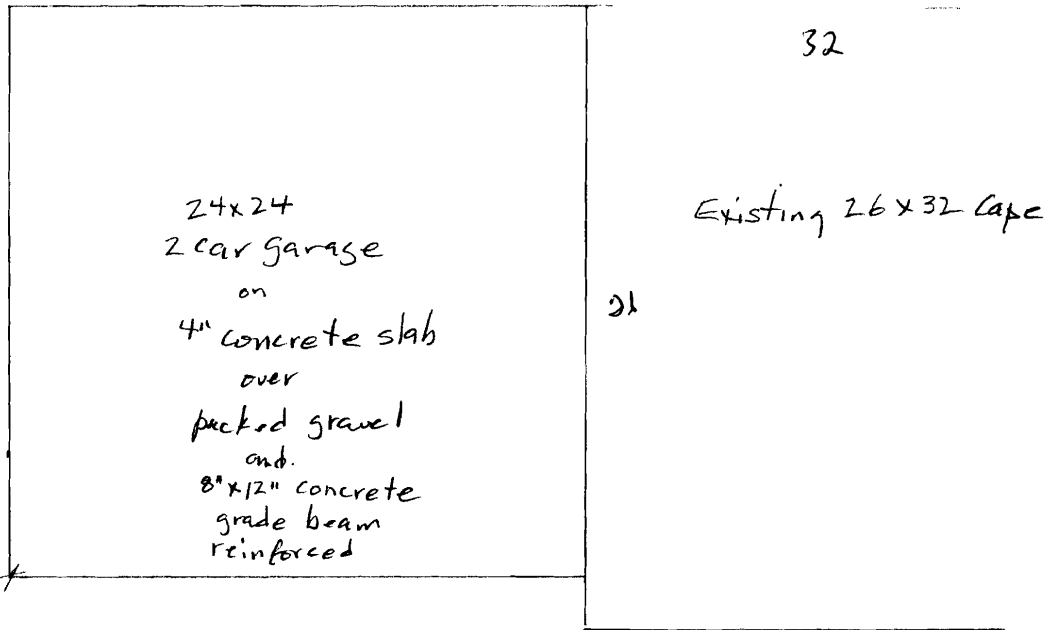 32
24x24
2 car garage
on
4" concrete slab
over
packed gravel
and.
8"x12" concrete
grade beam
reinforced
Existing 26x32 Cape